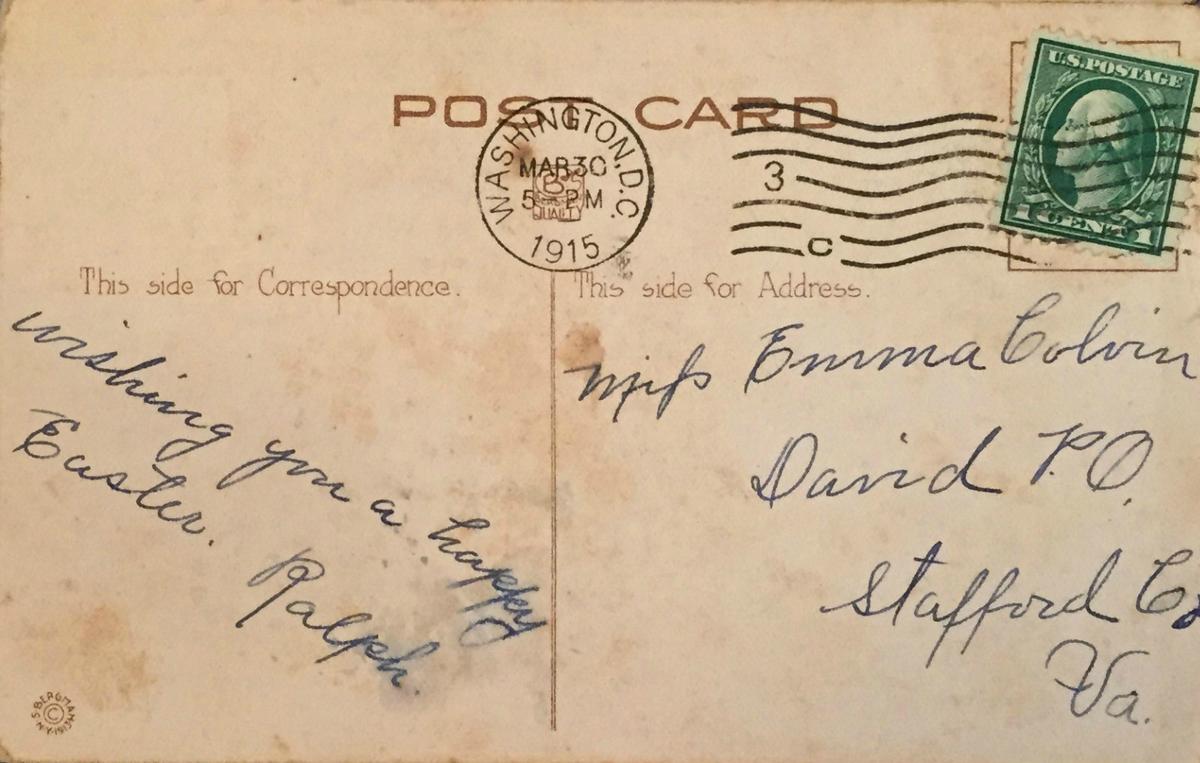 POST CARD
WASHINGTON, D.C.
MAR 30
5 PM
1915
QUALITY
3
C
U.S. POSTAGE
1 CENT 1
This side for Correspondence.
This side for Address.
wishing you a happy
Easter.
Ralph.
Miss Emma Colvin
David P.O.
Stafford Co
Va.
S. BERGMAN
©
N.Y.